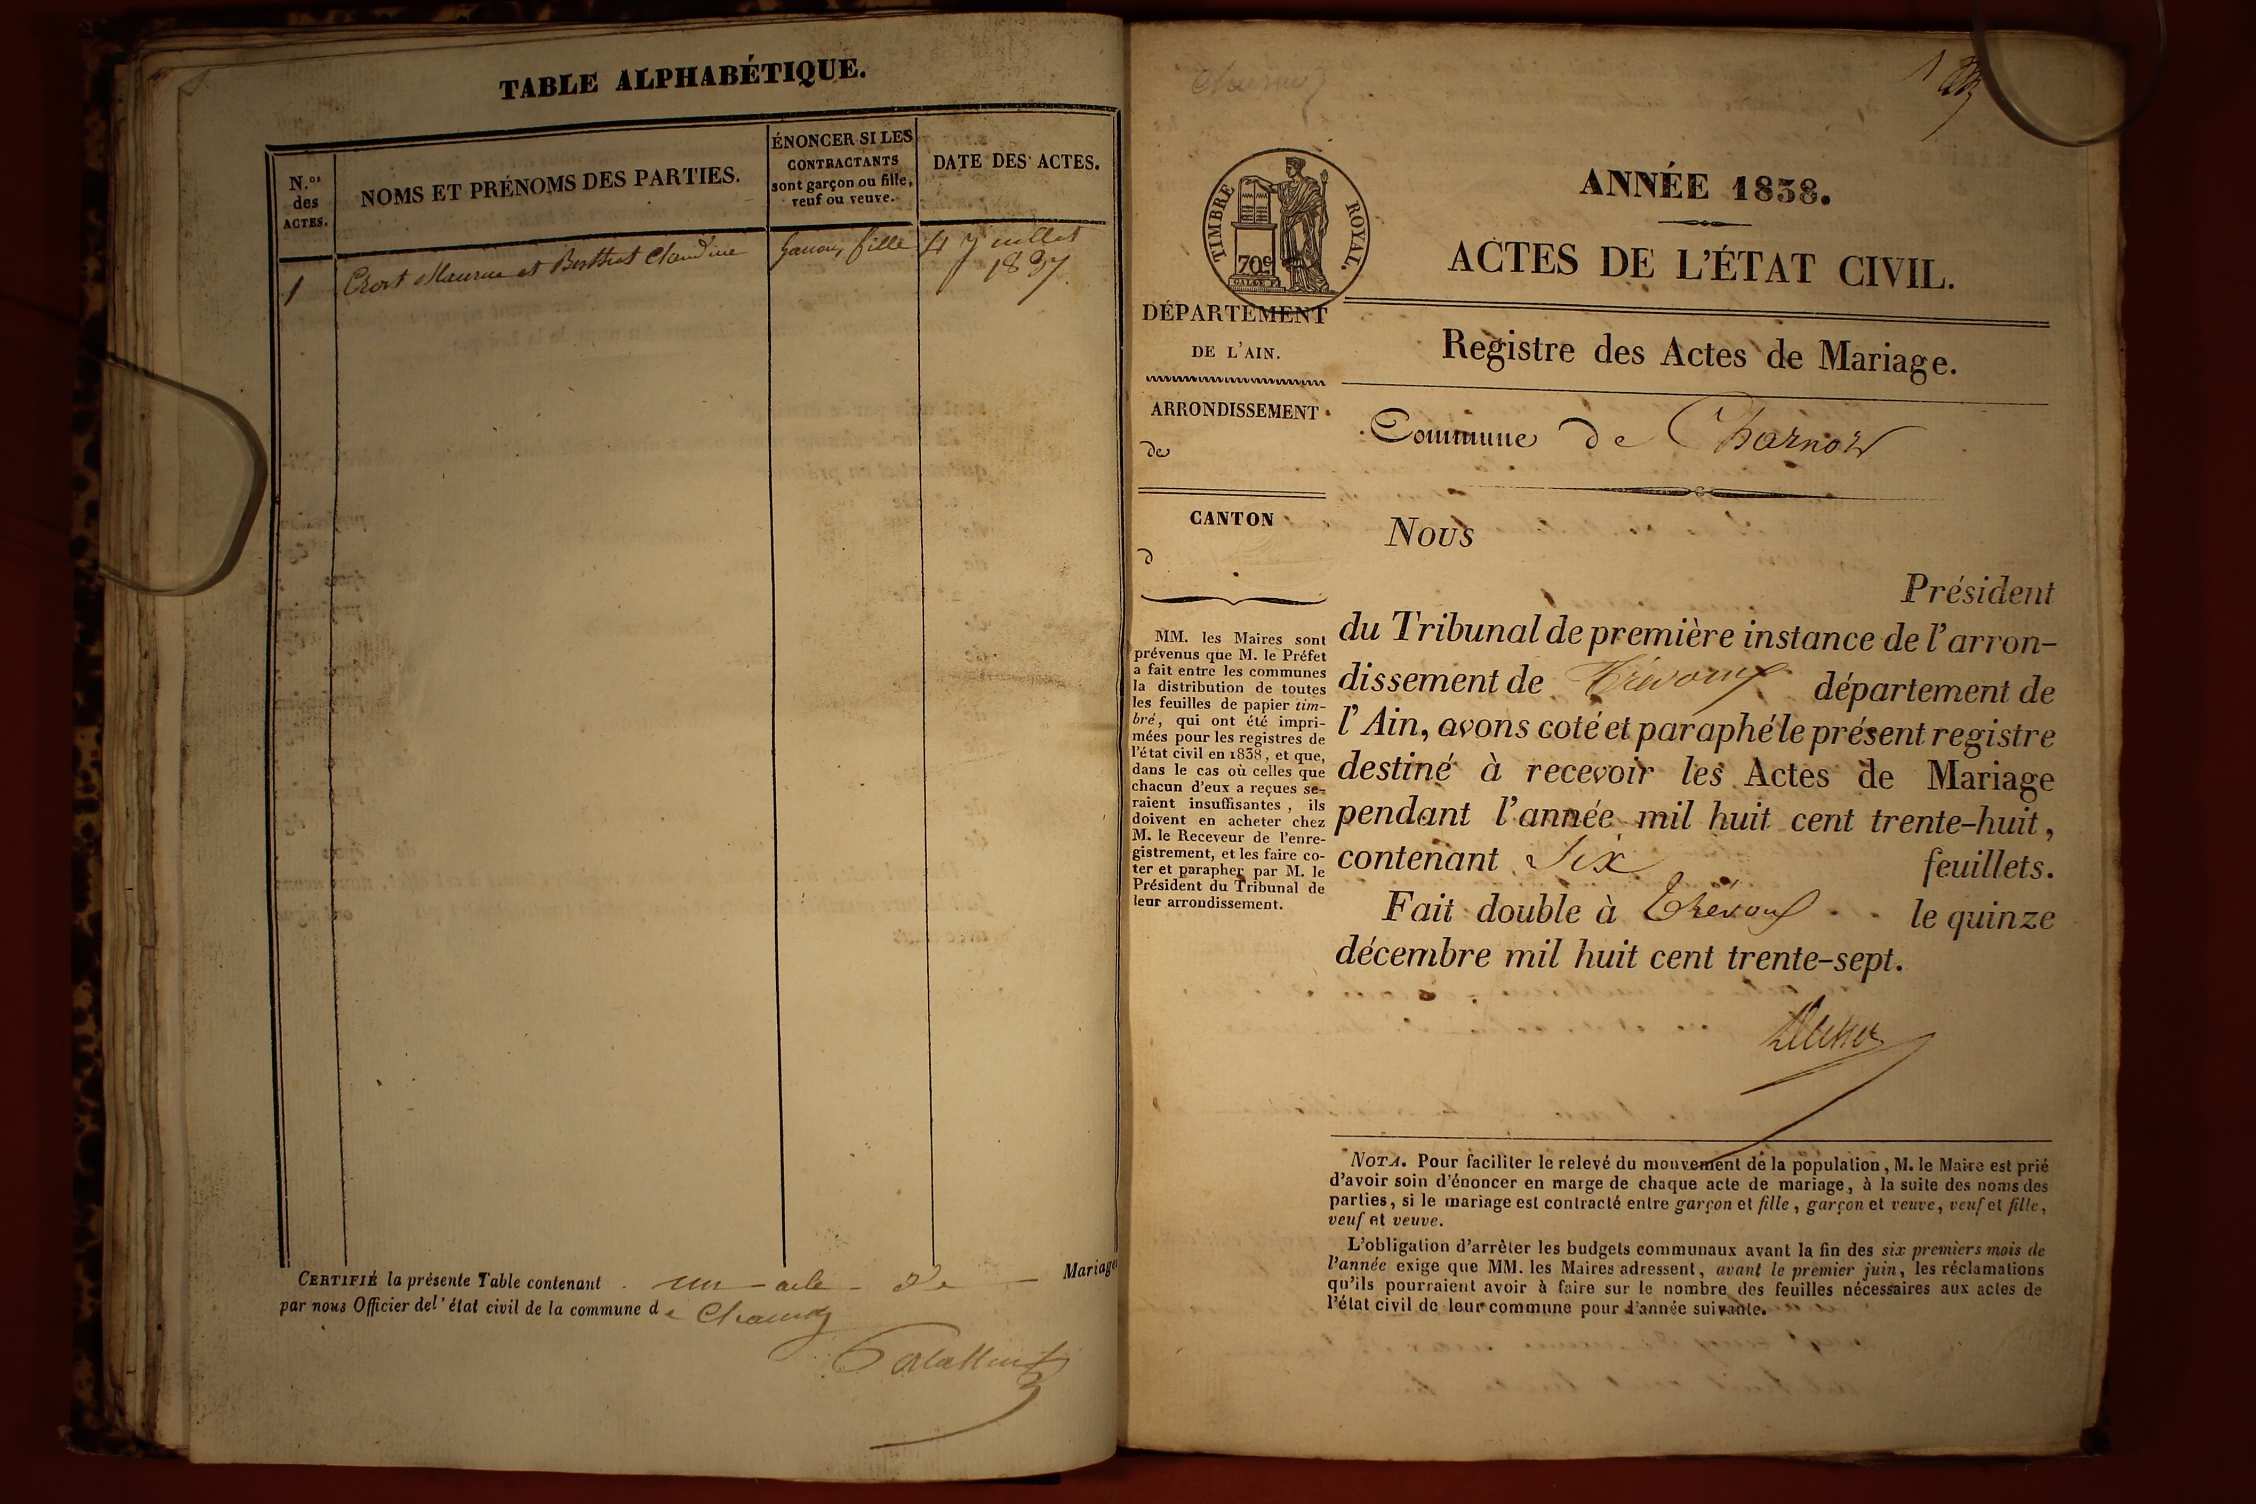 TABLE ALPHABÉTIQUE.
N.os
des
ACTES.
NOMS ET PRÉNOMS DES PARTIES.
ÉNONCER SI LES
CONTRACTANTS
sont garçon ou fille,
veuf ou veuve.
DATE DES ACTES.
1
Maurice et Claudine
fille
4 Juillet
1837
CERTIFIÉ la présente Table contenant un acte de Mariage
par nous Officier de l'état civil de la commune de
TIMBRE
ROYAL.
70c
DÉPARTEMENT
DE L'AIN.
ARRONDISSEMENT
de
CANTON
d
MM. les Maires sont
prévenus que M. le Préfet
a fait entre les communes
la distribution de toutes
les feuilles de papier tim-
bré, qui ont été impri-
mées pour les registres de
l'état civil en 1838, et que,
dans le cas où celles que
chacun d'eux a reçues se-
raient insuffisantes, ils
doivent en acheter chez
M. le Receveur de l'enre-
gistrement, et les faire co-
ter et parapher par M. le
Président du Tribunal de
leur arrondissement.
1
ANNÉE 1838.
ACTES DE L'ÉTAT CIVIL.
Registre des Actes de Mariage.
Commune de Charnoz
Nous
Président
du Tribunal de première instance de l'arron-
dissement de Trévoux département de
l'Ain, avons coté et paraphé le présent registre
destiné à recevoir les Actes de Mariage
pendant l'année mil huit cent trente-huit,
contenant Six feuillets.
Fait double à Trévoux le quinze
décembre mil huit cent trente-sept.
NOTA. Pour faciliter le relevé du mouvement de la population, M. le Maire est prié
d'avoir soin d'énoncer en marge de chaque acte de mariage, à la suite des noms des
parties, si le mariage est contracté entre garçon et fille, garçon et veuve, veuf et fille,
veuf et veuve.
L'obligation d'arrêter les budgets communaux avant la fin des six premiers mois de
l'année exige que MM. les Maires adressent, avant le premier juin, les réclamations
qu'ils pourraient avoir à faire sur le nombre des feuilles nécessaires aux actes de
l'état civil de leur commune pour l'année suivante.